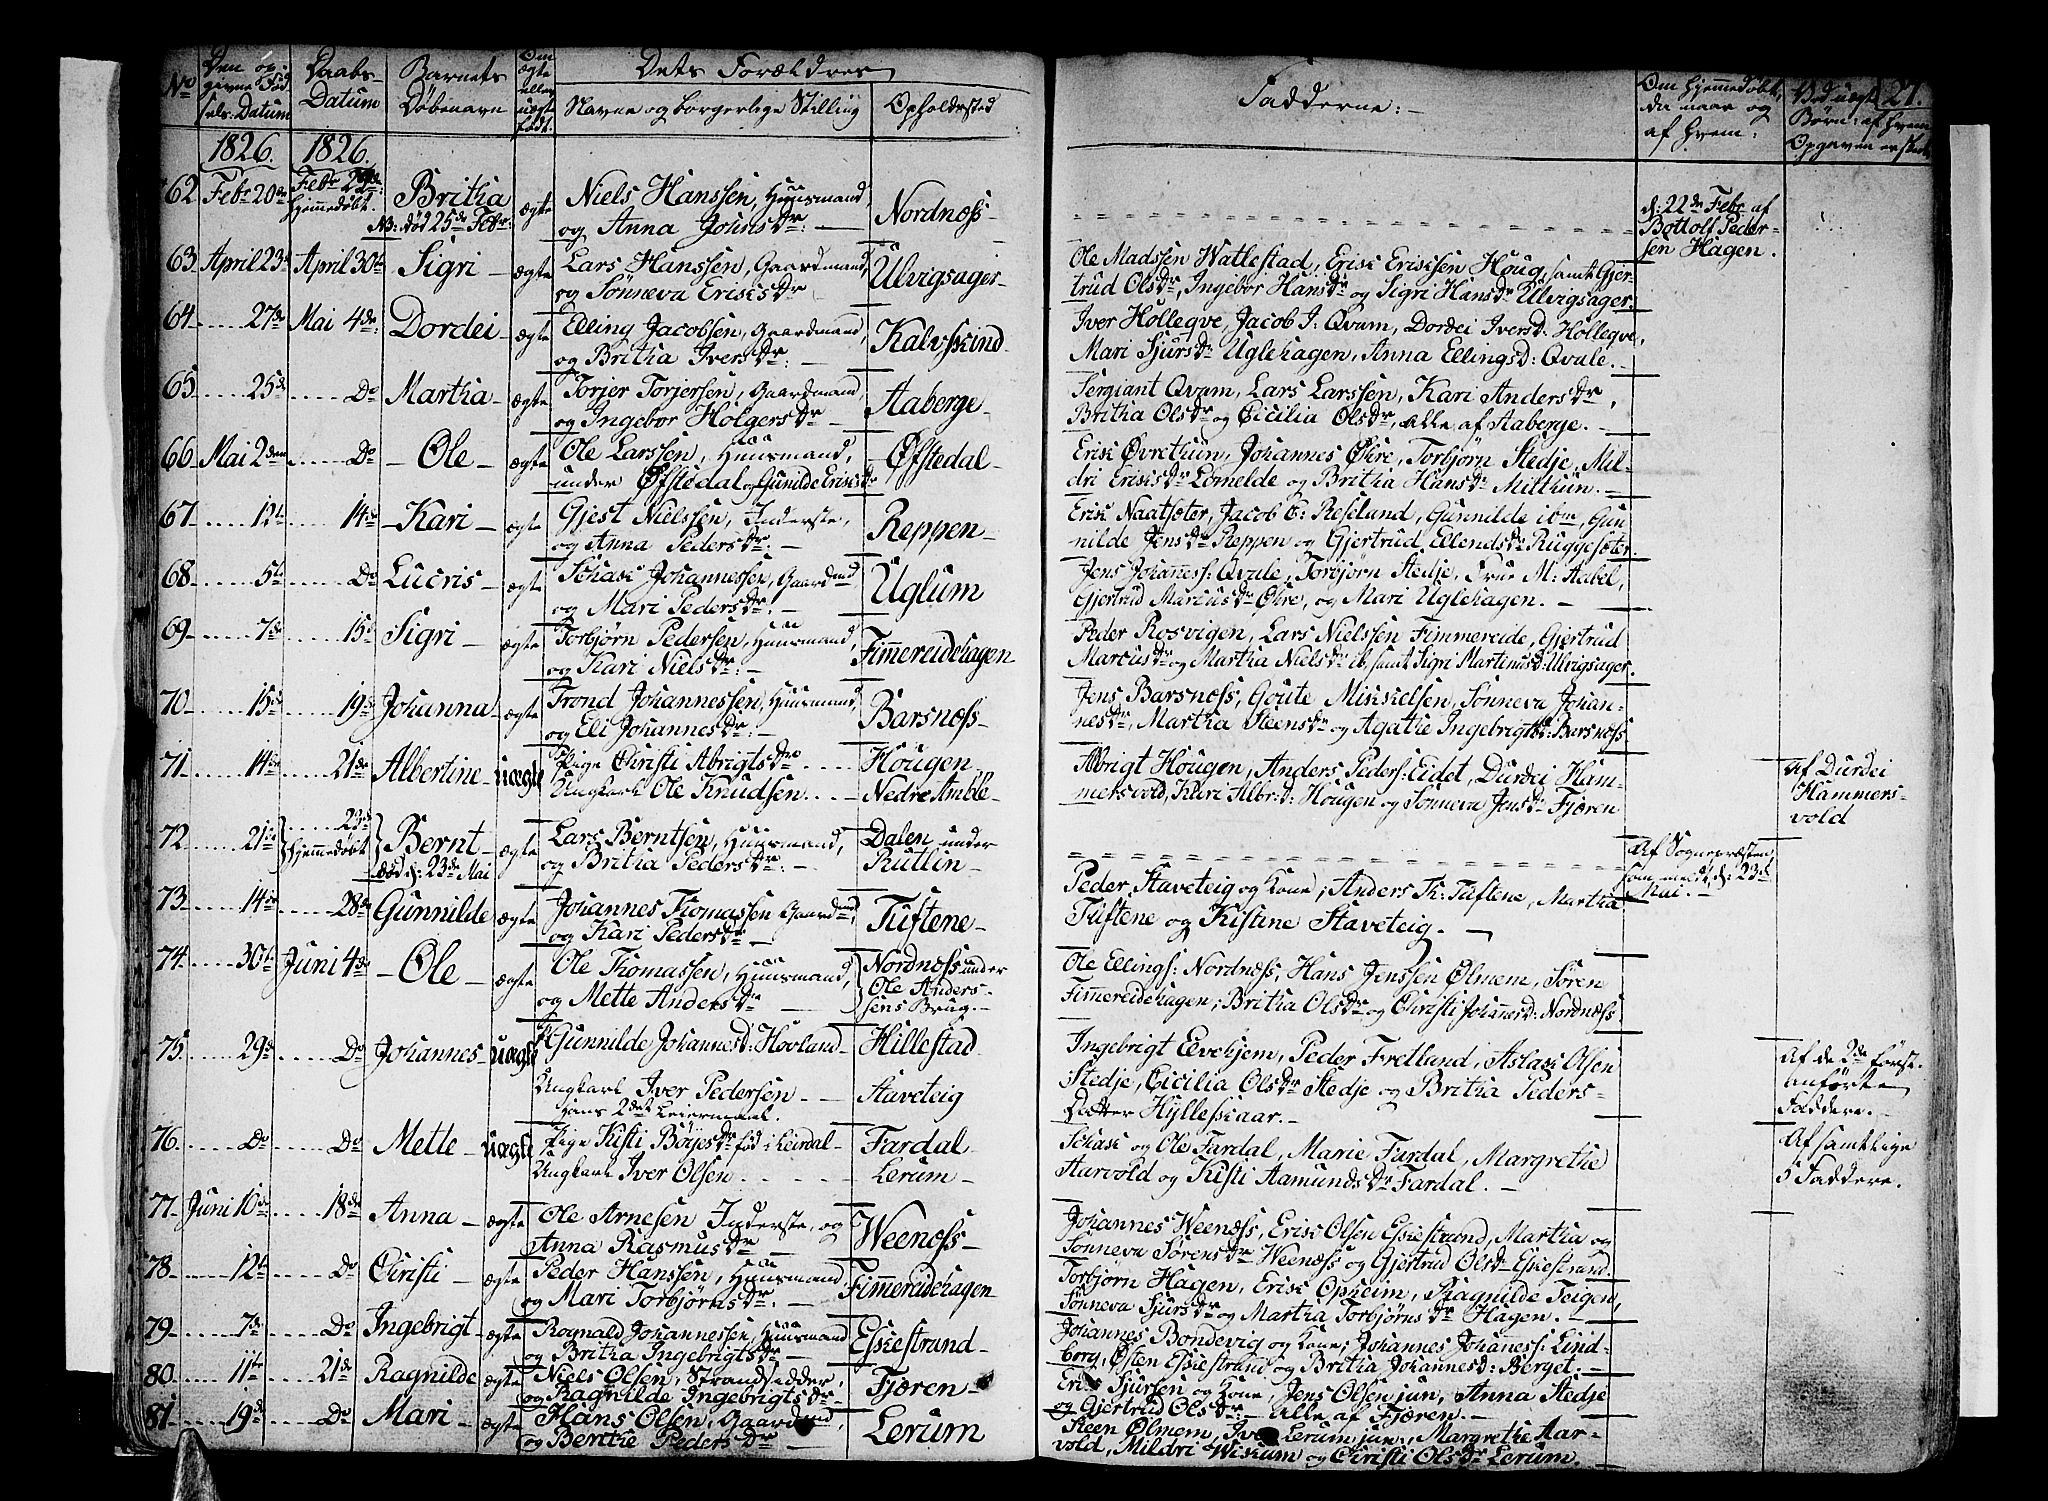 No
Den op-
givne Fød
sels: Datum
Daabs-
Datum
Barnets
Døbenavn
Om
ægte
eller
uægte
født.
Dets Forældres
Navne og borgerlige Stilling
Opholdssted
Fadderne:
Om hjemmedøbt,
da naar og
af hvem:
Ved uægte
Børn: af hvem
Opgaven er skeet
27.
1826. 1826.
62 Febr 20de Febr 22de hjemmedøbt. Britha ægte Niels Hanssen, Huusmand, Nordnæss
NB: død 25de Febr: og Anna Johnsdr:
d: 22de Febr af
Bottolf Peder-
sen Hagen.
63 April 23de April 30te Sigri ægte Lars Hanssen, Gaardmand, Ulvigsager
og Sønneva Ericsdr
Ole Madssen Wallestad, Eric Ericssen Houg, samt Gjer-
trud Olsdr, Ingebor Hansdr og Sigri Hansdr Ulvigsager.
64 27de Mai 4de Dordei ægte Elling Jacobsen, Gaardmand, Kalvskind
og Britha Iversdr:
Iver Holleqve, Jacob J: Qvam, Dordei Iversd: Holleqve,
Mari Sjursdr Uglehagen, Anna Ellingsd: Qvale.
65 25de Do Martha ægte Torjer Torjersen, Gaardmand, Aaberge
og Ingebor Holgersdr
Sergiant Qvam, Lars Larssen, Kari Andersdr,
Britha Olsdr og Cicilia Olsdr, alle af Aaberge.
66 Mai 2den Do Ole ægte Ole Larssen, Huusmand, Øfstedal
under Øfstedal og Gunilde Ericsdr
Eric Øvrethun, Johannes Øhre, Torbjørn Stedje, Mil-
dri Ericsdr Lomelde og Britha Hansdr Milthun.
67 12te 14de Kari ægte Gjest Nielssen, Inderste, Reppen
og Anna Pedersdr:
Eric Naatsæter, Jacob E: Reselund, Gunnilde ibm, Gun
nilde Jensdr Reppen og Gjertrud Ellendsdr Ruggesæter.
68 5te Do Lucris ægte Schack Johannessen, Gaardmd Uglum
og Mari Pedersdr:
Jens Johanness: Qvale, Torbjørn Stedje, Frue M: Aabel,
Gjertrud Marcusdr Øhre, og Mari Uglehagen.
69 7de 15de Sigri ægte Torbjørn Pedersen, Huusmand, Fimmereidehagen
og Kari Nielsdr:
Peder Rosvigen, Lars Nielssen Fimmereide, Gjertrud
Marcusdr og Martha Nielsdr ib, samt Sigri Martinusd: Ulvigsager.
70 15de 19de Johanna ægte Trond Johannessen, Huusmand, Barsnæss
og Eli Johannesdr:
Jens Barsnæss, Goute Mickelsen, Sønneva Johan-
nesdr, Martha Steensdr og Agathe Ingebrigtsd: Barsnæss
71 14de 21de Albertine uægte Pige Christi Abrigtsdr Hougen
Ungkarl Ole Knudsen Nedre Amble
Albrigt Hougen, Anders Peders: Eidet, Durdei Ham-
mersvold, Kari Albr:d: Hougen og Sønneva Jensdr Fjæren
Af Durdei
Hammers-
vold
72 21de 23de hjemmedøbt Bernt ægte Lars Berntsen, Huusmand, Dalen under
død d: 23de Mai og Britha Pedersdr: Rutlin
Af Sognepræsten,
som meldt, d: 23de
Mai.
73 14de 28de Gunnilde ægte Johannes Thomassen Gaardmd, Tuftene
og Kari Pedersdr
Peder Staveteig og Kone, Anders Th: Tuftene, Martha
Tuftene og Kistine Staveteig.
74 30te Juni 4de Ole ægte Ole Thomassen, Huusmand, Nordnæss under
og Mette Andersdr Ole Anders-
sens Brug.
Ole Ellings: Nordnæss, Hans Jenssen Ølmem, Søren
Fimmereidehagen, Britha Olsdr og Christi Johannesd: Nordnæss
75 29de Do Johannes uægte P: Gunnilde Johannesd: Hovland Hillestad
Ungkarl Iver Pedersen Staveteig
hans 2det Leiermaal.
Ingebrigt Elvehjem, Peder Fretlund, Aslak Olsen
Stedje, Cicilia Olsdr Stedje og Britha Peders-
Datter Hylleskaar.
Af de 2de først-
anførte
Faddere.
76 Do Do Mette uægte Pige Kisti Bøyesdr fød i Leirdal Fardal
Ungkarl Iver Olsen Lerum
Schack og Ole Fardal, Marie Fardal, Margrethe
Aarvold og Kisti Aamundsdr Fardal.
Af samtlige
5 Faddere.
77 Juni 10de 18de Anna ægte Ole Arnesen Inderste, og Weenæss
Anna Rasmusdr
Johannes Weenæss, Eric Olsen Eskestrand, Martha og
Sønneva Sørensdr Weenæss og Gjertrud Olsdr Eskestrand.
78 12te Do Christi ægte Peder Hanssen, Huusmand Fimmereidehagen
og Mari Torbjørnsdr:
Torbjørn Hagen, Eric Opheim, Ragnilde Teigen,
Sønneva Sjursdr og Martha Torbjørnsdr Hagen.
79 7de Do Ingebrigt ægte Rognald Johannessen, Huusmand Eskestrand
og Britha Ingebrigtsdr
Johannes Bondevig og Kone, Johannes Johanness: Lind-
borg, Østen Eskestrand og Britha Johannesd: Berget.
80 11te 21de Ragnilde ægte Niels Olsen, Strandsidder, Fjæren
og Ragnilde Ingebrigtsdr
Eric Sjursen og Kone, Jens Olsen jun, Anna Stedje
og Gjertrud Olsdr: alle af Fjæren.
81 19de Do Mari ægte Hans Olsen, Gaardmd, Lerum
og Berithe Pedersdr
Steen Ølmem, Iver Lerum jun, Margrethe Aar-
vold, Mildri Wiskum og Christi Olsdr Lerum.